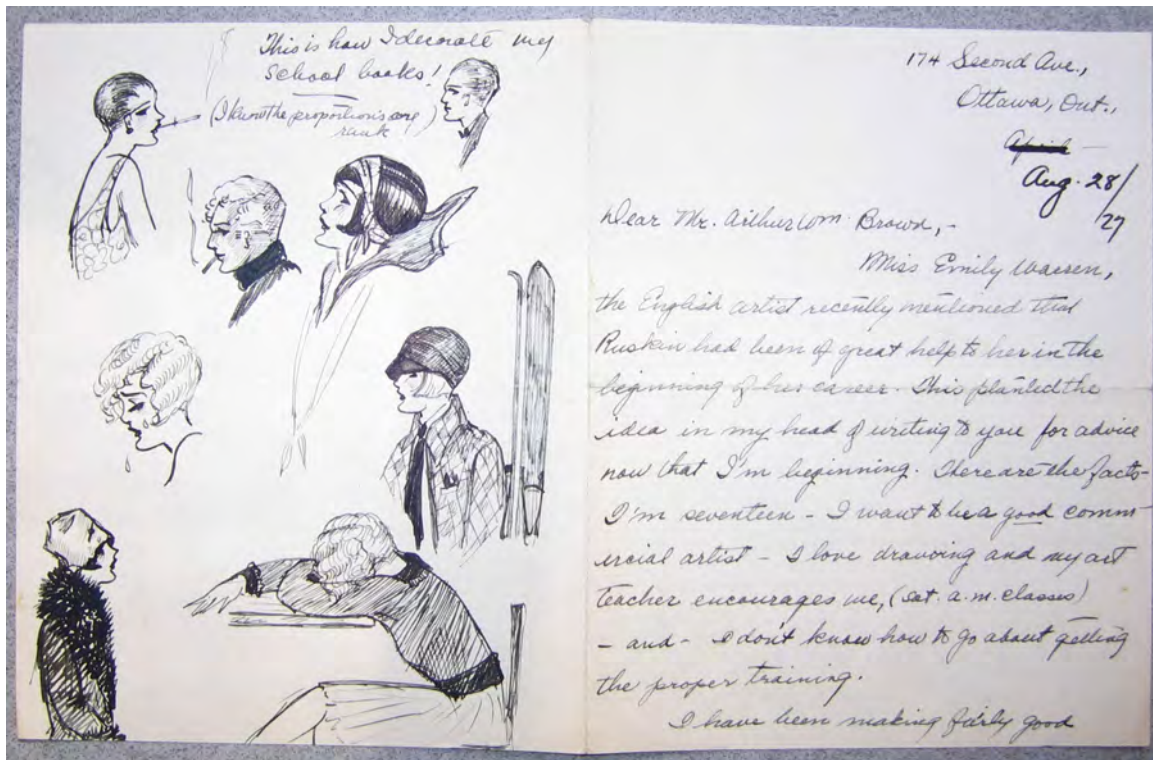 This is how I decorate my
school books!
(I know the proportions are
rank)
174 Second Ave.,
Ottawa, Ont.,
April -
Aug. 28/
27
Dear Mr. Arthur Wm. Brown, -
Miss Emily Warren,
the English artist recently mentioned that
Ruskin had been of great help to her in the
beginning of her career. This planted the
idea in my head of writing to you for advice
now that I'm beginning. There are the facts -
I'm seventeen - I want to be a good comm-
ercial artist - I love drawing and my art
teacher encourages me, (Sat. a.m. classes)
- and - I don't know how to go about getting
the proper training.
I have been making fairly good